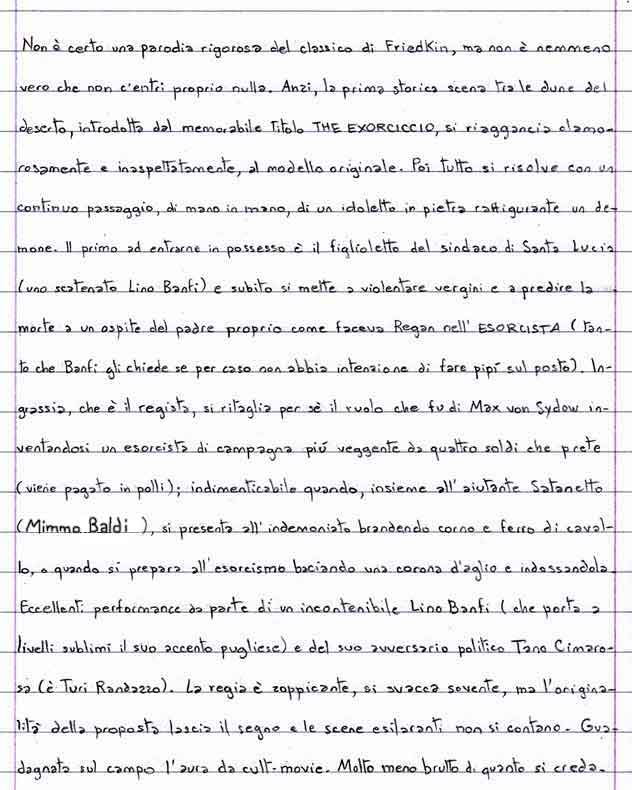 Non è certo una parodia rigorosa del classico di Friedkin, ma non è nemmeno
vero che non c'entri proprio nulla. Anzi, la prima storica scena tra le dune del
deserto, introdotta dal memorabile titolo THE EXORCICCIO, si riaggancia clamo-
rosamente e inaspettatamente, al modello originale. Poi tutto si risolve con un
continuo passaggio, di mano in mano, di un idoletto in pietra raffigurante un de-
mone. Il primo ad entrarne in possesso è il figlioletto del sindaco di Santa Lucia
(uno scatenato Lino Banfi) e subito si mette a violentare vergini e a predire la
morte a un ospite del padre proprio come faceva Regan nell' ESORCISTA (tan-
to che Banfi gli chiede se per caso non abbia intenzione di fare pipí sul posto). In-
grassia, che è il regista, si ritaglia per sè il ruolo che fu di Max von Sydow in-
ventandosi un esorcista di campagna piú veggente da quattro soldi che prete
(viene pagato in polli); indimenticabile quando, insieme all'aiutante Satanetto
(Mimmo Baldi), si presenta all'indemoniato brandendo corno e ferro di caval-
lo, o quando si prepara all'esorcismo baciando una corona d'aglio e indossandola.
Eccellenti performance da parte di un incontenibile Lino Banfi (che porta a
livelli sublimi il suo accento pugliese) e del suo avversario politico Tano Cimaro-
sa (è Turi Randazzo). La regia è zoppicante, si svacca sovente, ma l'origina-
lità della proposta lascia il segno e le scene esilaranti non si contano. Gua-
dagnata sul campo l'aura da cult-movie. Molto meno brutto di quanto si creda.